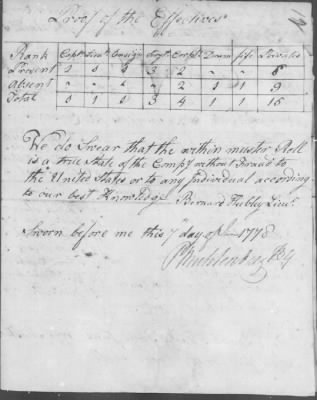 Proof of the Effectives
Rank Capt Lieut Ensign Sergt Corpl Drum fife Privates
Present 0 0 3 2 " " 8
Absent " " " 2 1 1 9
Total 0 1 0 3 4 1 1
We do Swear that the within muster Roll
is a true State of the Compy without Fraud to
the United States or to any Individual according
to our best Knowledge Bernard Hubly Lieut.
Sworn before me this 7 day of June 1778
P Muhlenberg BG